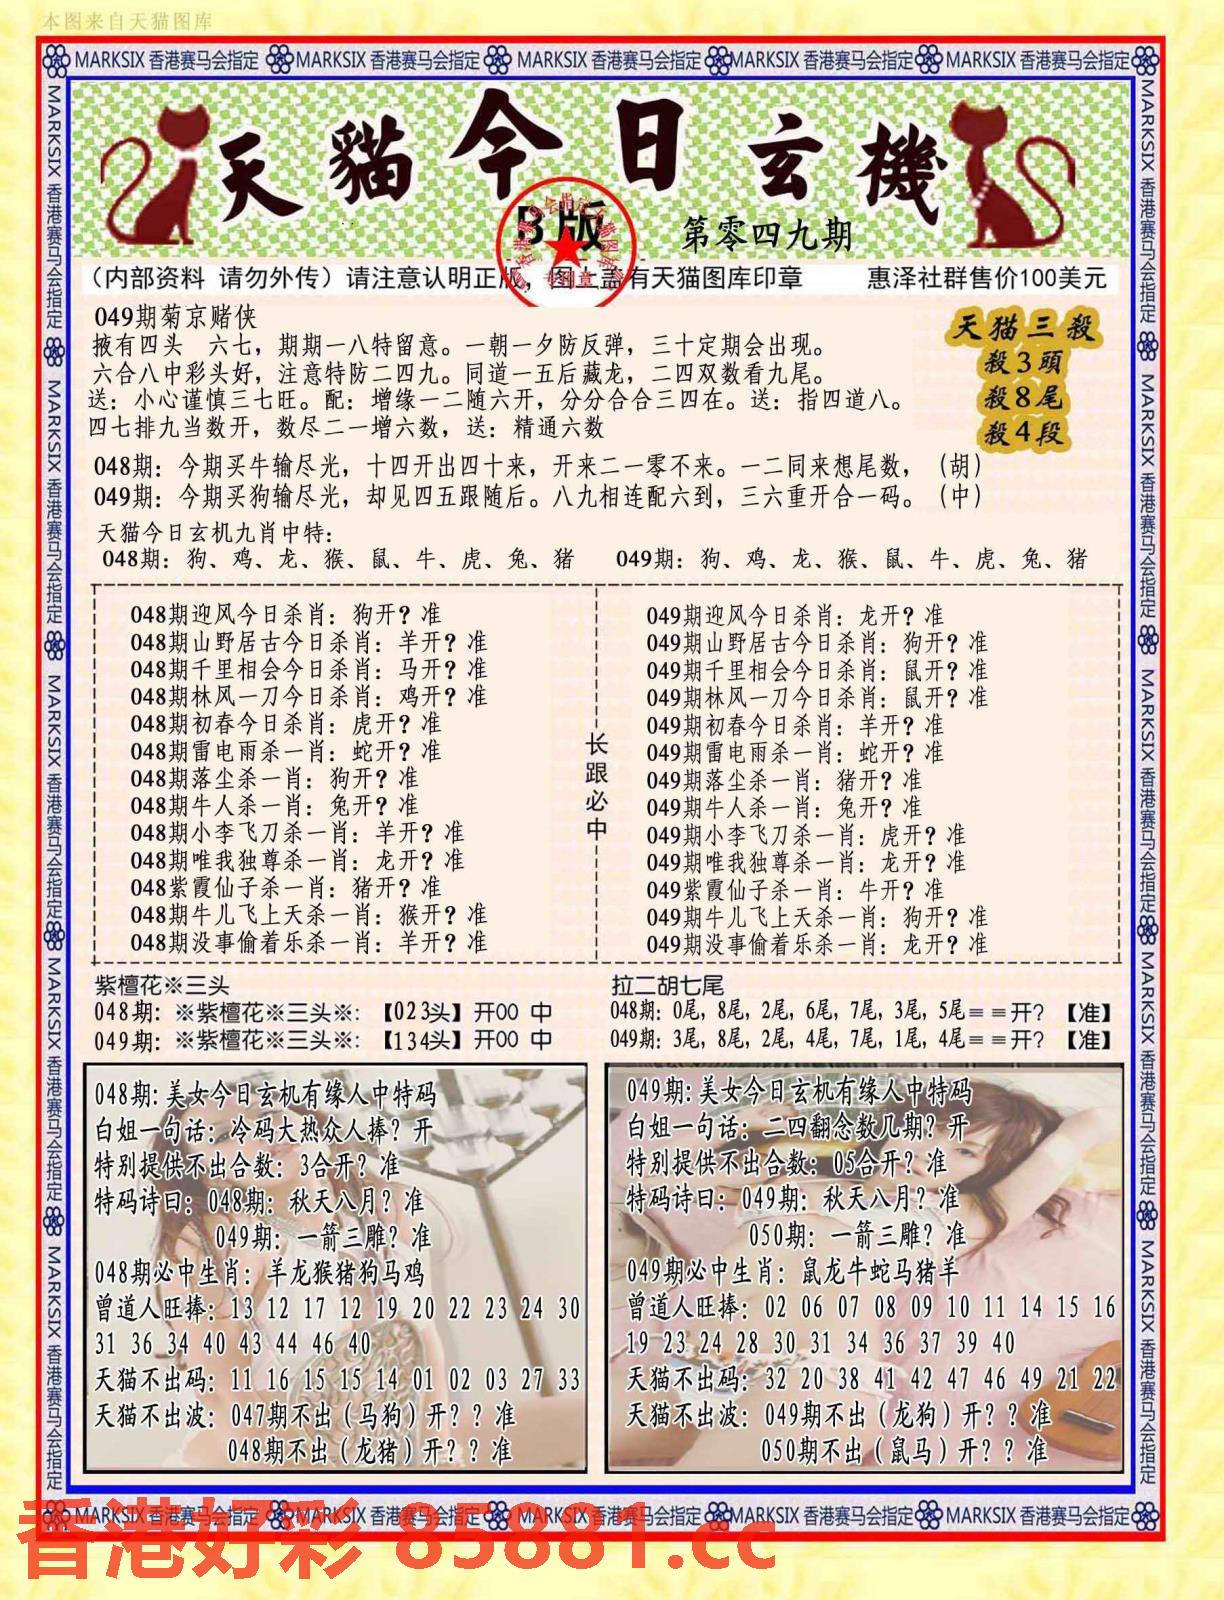 本图来自天猫图库
MARKSIX 香港赛马会指定 MARKSIX 香港赛马会指定 MARKSIX 香港赛马会指定 MARKSIX 香港赛马会指定 MARKSIX 香港赛马会指定
天貓今日玄機
B版
第零四九期
(内部资料 请勿外传) 请注意认明正版，图上盖有天猫图库印章 惠泽社群售价100美元
049期菊京赌侠
掖有四头 六七，期期一八特留意。一朝一夕防反弹，三十定期会出现。
六合八中彩头好，注意特防二四九。同道一五后藏龙，二四双数看九尾。
送：小心谨慎三七旺。配：增缘一二随六开，分分合合三四在。送：指四道八。
四七排九当数开，数尽二一增六数，送：精通六数
天猫三殺
殺3頭
殺8尾
殺4段
048期：今期买牛输尽光，十四开出四十来，开来二一零不来。一二同来想尾数，（胡）
049期：今期买狗输尽光，却见四五跟随后。八九相连配六到，三六重开合一码。（中）
天猫今日玄机九肖中特：
048期：狗、鸡、龙、猴、鼠、牛、虎、兔、猪 049期：狗、鸡、龙、猴、鼠、牛、虎、兔、猪
048期迎风今日杀肖：狗开？准
048期山野居古今日杀肖：羊开？准
048期千里相会今日杀肖：马开？准
048期林风一刀今日杀肖：鸡开？准
048期初春今日杀肖：虎开？准
048期雷电雨杀一肖：蛇开？准
048期落尘杀一肖：狗开？准
048期牛人杀一肖：兔开？准
048期小李飞刀杀一肖：羊开？准
048期唯我独尊杀一肖：龙开？准
048紫霞仙子杀一肖：猪开？准
048期牛儿飞上天杀一肖：猴开？准
048期没事偷着乐杀一肖：羊开？准
长跟必中
049期迎风今日杀肖：龙开？准
049期山野居古今日杀肖：狗开？准
049期千里相会今日杀肖：鼠开？准
049期林风一刀今日杀肖：鼠开？准
049期初春今日杀肖：羊开？准
049期雷电雨杀一肖：蛇开？准
049期落尘杀一肖：猪开？准
049期牛人杀一肖：兔开？准
049期小李飞刀杀一肖：虎开？准
049期唯我独尊杀一肖：龙开？准
049紫霞仙子杀一肖：牛开？准
049期牛儿飞上天杀一肖：狗开？准
049期没事偷着乐杀一肖：龙开？准
紫檀花※三头
048期：※紫檀花※三头※：【023头】开00 中
049期：※紫檀花※三头※：【134头】开00 中
拉二胡七尾
048期：0尾，8尾，2尾，6尾，7尾，3尾，5尾＝＝开？【准】
049期：3尾，8尾，2尾，4尾，7尾，1尾，4尾＝＝开？【准】
048期：美女今日玄机有缘人中特码
白姐一句话：冷码大热众人捧？开
特别提供不出合数：3合开？准
特码诗曰：048期：秋天八月？准
049期：一箭三雕？准
048期必中生肖：羊龙猴猪狗马鸡
曾道人旺捧：13 12 17 12 19 20 22 23 24 30
31 36 34 40 43 44 46 40
天猫不出码：11 16 15 15 14 01 02 03 27 33
天猫不出波：047期不出（马狗）开？？准
048期不出（龙猪）开？？准
049期：美女今日玄机有缘人中特码
白姐一句话：二四翻念数几期？开
特别提供不出合数：05合开？准
特码诗曰：049期：秋天八月？准
050期：一箭三雕？准
049期必中生肖：鼠龙牛蛇马猪羊
曾道人旺捧：02 06 07 08 09 10 11 14 15 16
19 23 24 28 30 31 34 36 37 39 40
天猫不出码：32 20 38 41 42 47 46 49 21 22
天猫不出波：049期不出（龙狗）开？？准
050期不出（鼠马）开？？准
MARKSIX 香港赛马会指定 MARKSIX 香港赛马会指定 MARKSIX 香港赛马会指定 MARKSIX 香港赛马会指定 MARKSIX 香港赛马会指定
MARKSIX 香港赛马会指定 MARKSIX 香港赛马会指定 MARKSIX 香港赛马会指定 MARKSIX 香港赛马会指定 MARKSIX 香港赛马会指定
MARKSIX 香港赛马会指定 MARKSIX 香港赛马会指定 MARKSIX 香港赛马会指定 MARKSIX 香港赛马会指定 MARKSIX 香港赛马会指定
香港好彩 85881.cc